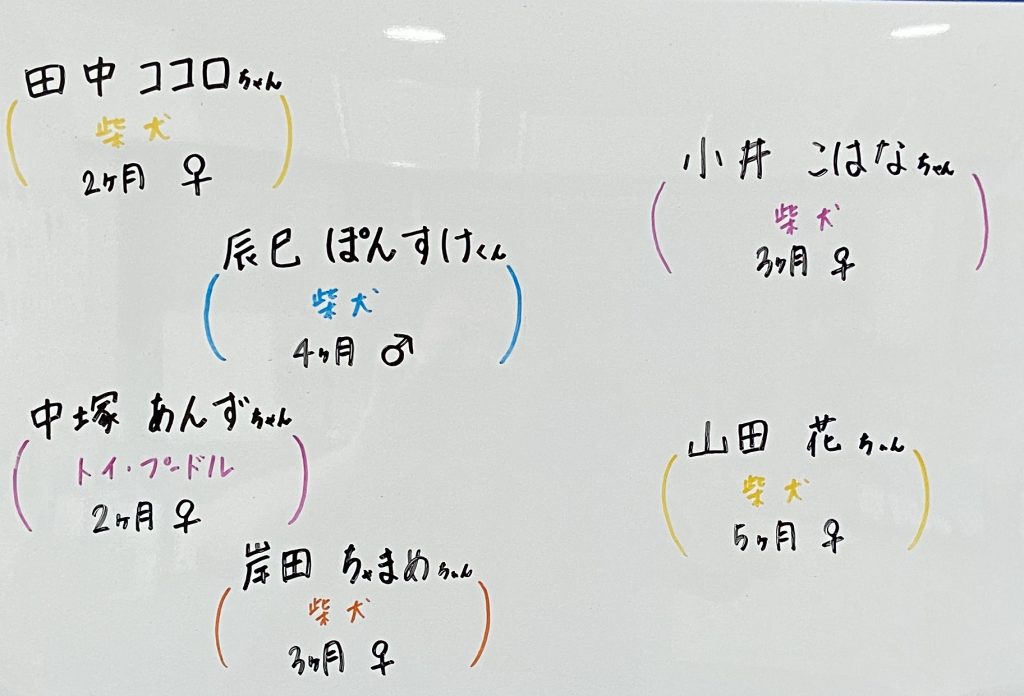 田中 ココロちゃん
柴犬
2ヶ月 ♀
辰巳 ぽんすけくん
柴犬
4ヶ月 ♂
中塚 あんずちゃん
トイ・プードル
2ヶ月 ♀
岸田 ちゃまめちゃん
柴犬
3ヶ月 ♀
小井 こはなちゃん
柴犬
3ヶ月 ♀
山田 花ちゃん
柴犬
5ヶ月 ♀